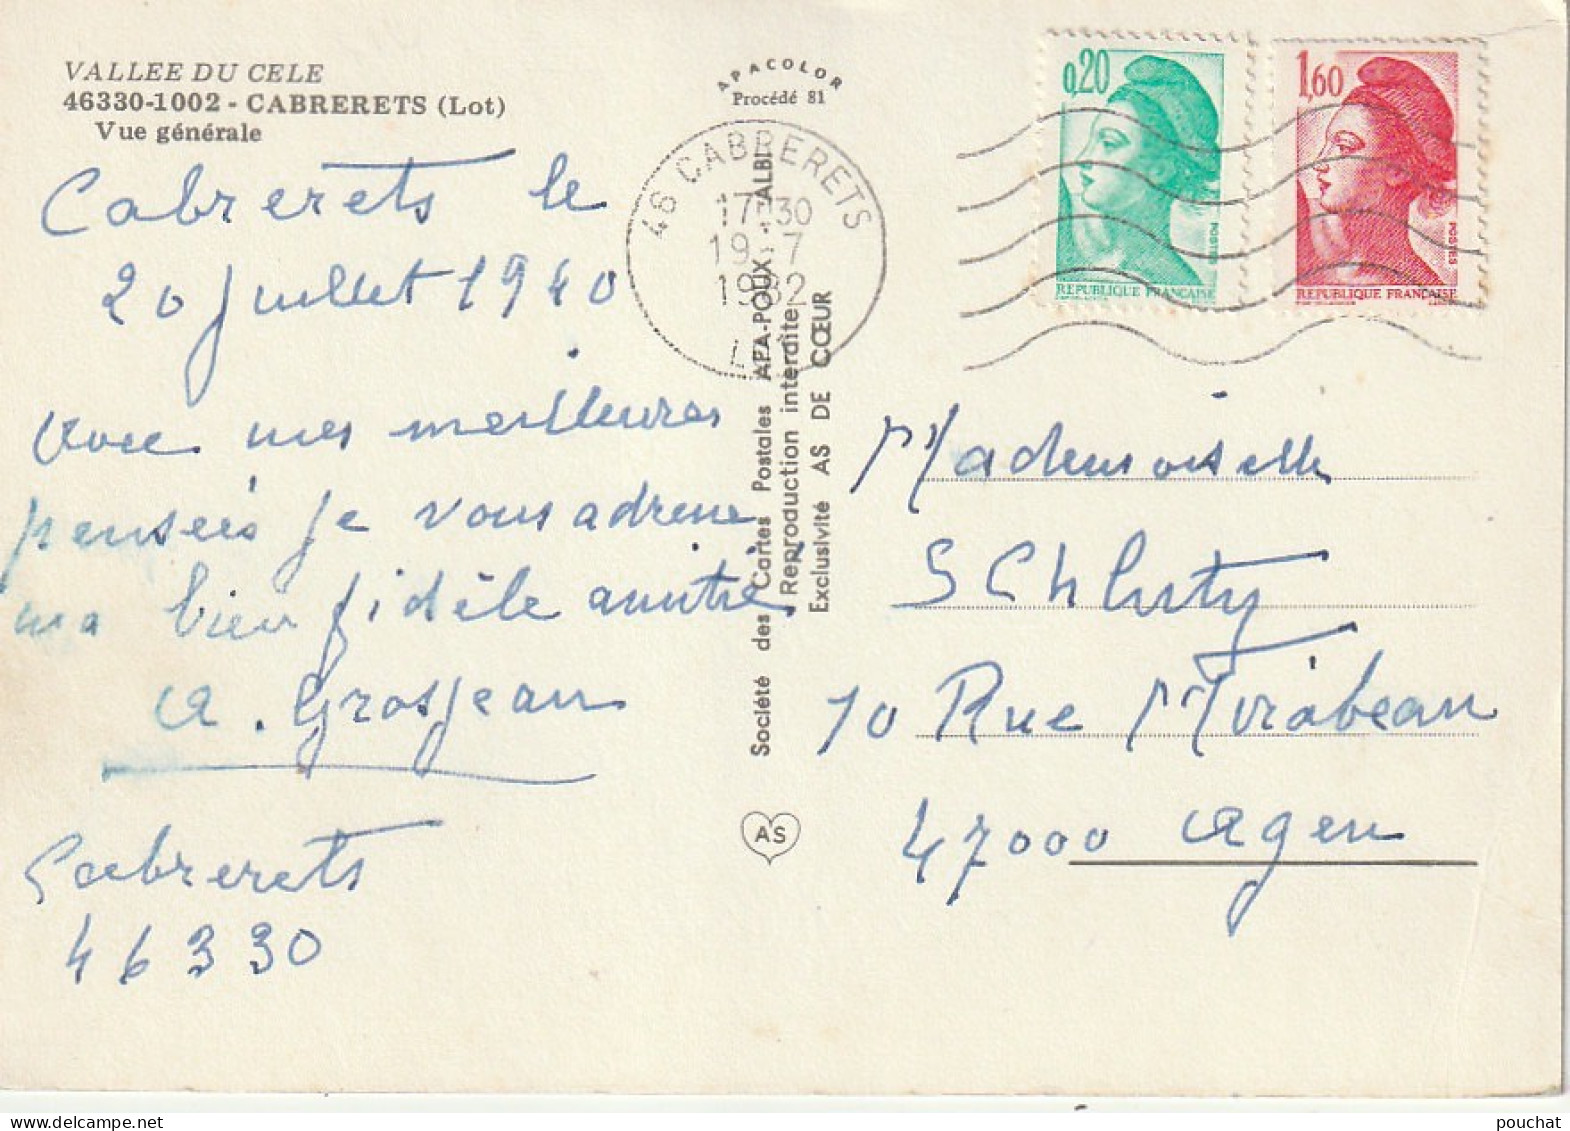 VALLEE DU CELE
46330-1002 - CABRERETS (Lot)
Vue générale
APACOLOR
Procédé 81
46 CABRERETS
17H30
19-7
1982
LOT
0,20
POSTES
REPUBLIQUE FRANÇAISE
1,60
POSTES
REPUBLIQUE FRANÇAISE
Cabrerets le
20 juillet 1940
Avec mes meilleures
pensées je vous adresse
ma bien fidèle amitié
A. Grosjean
Cabrerets
46330
Société des Cartes Postales APA-POUX - ALBI
Reproduction interdite
Exclusivité AS DE CŒUR
AS
Mademoiselle
SCHlusty
10 Rue Mirabeau
47000 Agen
pouchat